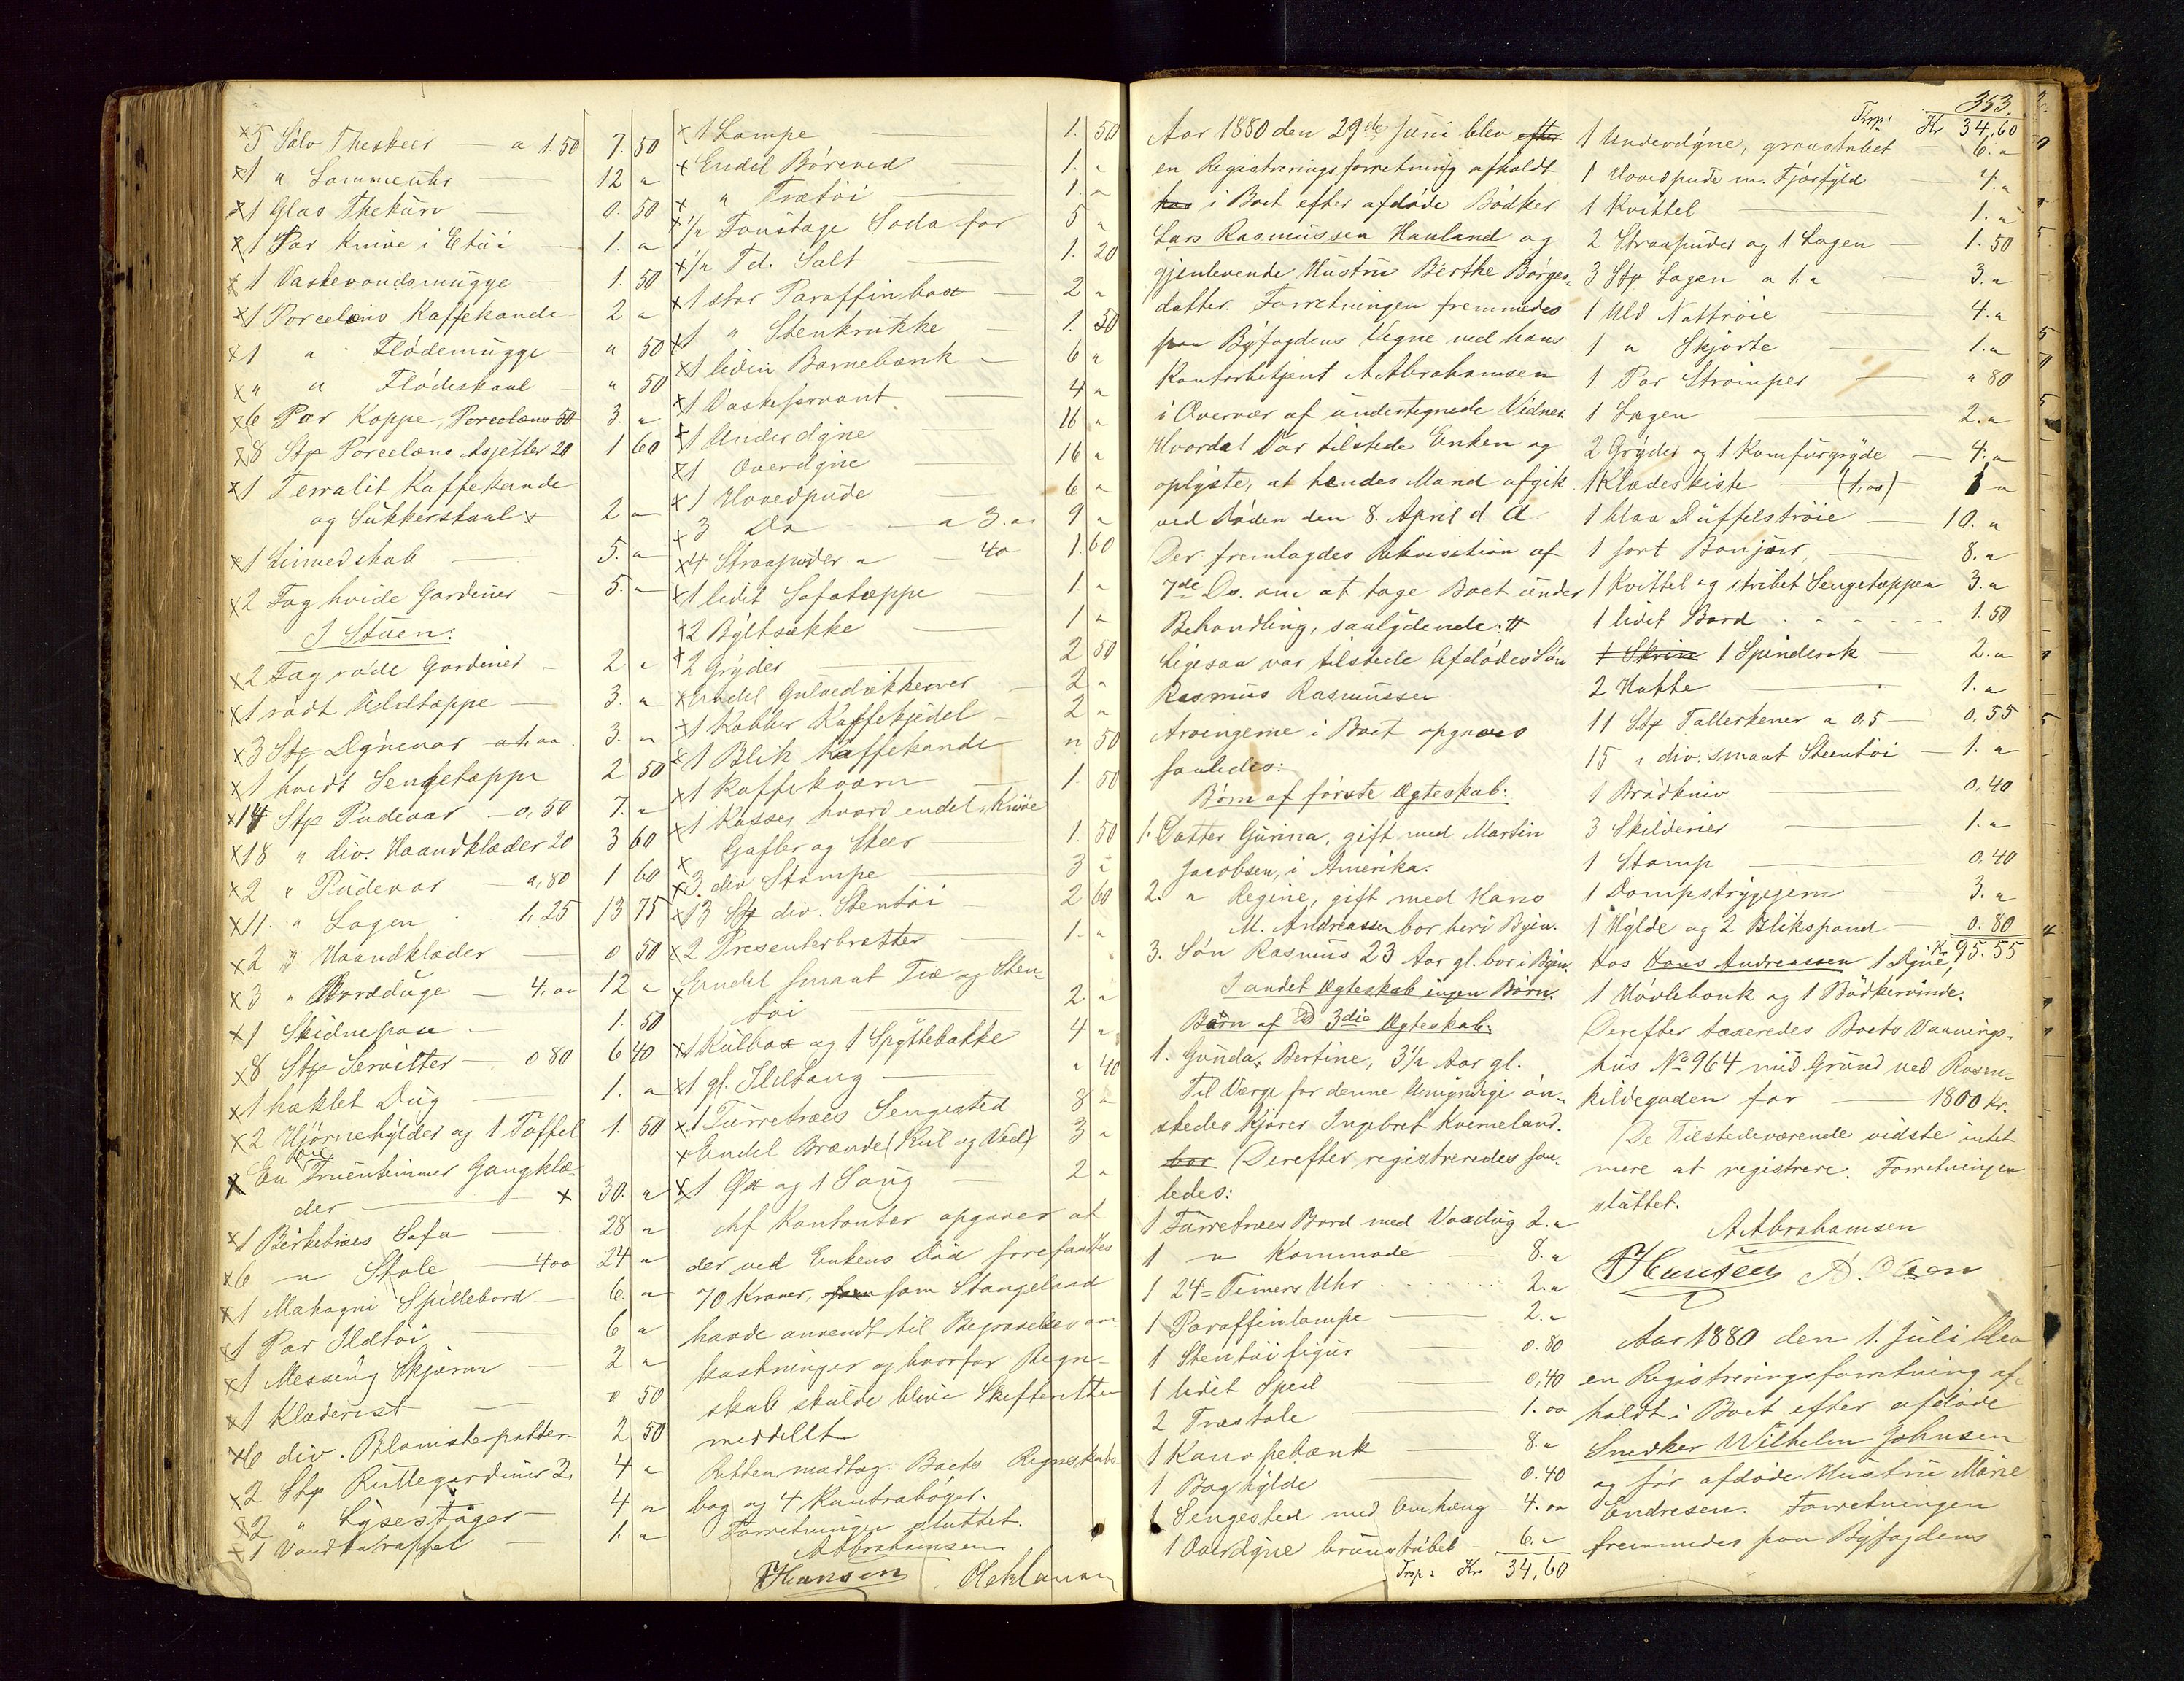 ×5 Sølv Theskeer — a 1.50 7.50
×1 " Lommeuhr — 12 "
×1 Glas Thekurv — 0.50
×1 Par Knive i Etui — 1. "
×1 Vaskevandsmugge — 1.50
×1 Porcelæns Kaffekande — 2 "
×1 " Flødemugge — " 50
×" " Flødeskaal — " 50
×6 Par Koppe, Porcelæns 50 3. "
×8 Stk Porcelæns Asjetter 20 1 60
×1 Terralit Kaffekande
og Sukkerskaal × 2 "
×1 Linnedskab — 5. "
×2 Fag hvide Gardiner — 5. "
I Stuen.
×2 Fag røde Gardiner — 2 "
×1 rødt Uldtæppe — 3. "
×3 Stk Dynevar — a 1,00 3. "
×1 hvidt Sengetæppe 2 50
×14 Stk Pudevar — 0,50 7. "
×18 " div. Haandklæder 20 3 60
×2 " Pudevar — a,80 1 60
×11 " Lagen 1,25 13 75
×2 " Haandklæder — 0 50
×3 " Bordduge — 4,00 12 "
×1 — 1.50
×8 Stk Servietter — 0 80 6 40
×1 hæklet Dug — 1. "
×2 Hjørnehylder og 1 Taffel 1.50
×En Fruentimmer Gangklæ-
der — × 30. "
×1 Birketræes Sofa — 28 "
×6 " Stole — 400 24 "
×1 Mahogni Spillebord — 6. "
×1 Par Ildtøi — 6 "
×1 Messing Skjærm — 2 "
×1 Klæderist — 0 50
×6 div. Blomsterpotter 2 50
×2 Stk Rullegardiner 2. 4 "
×2 " Lysestager — 4 "
×1 Vandkaraffel — 1. "
×1 Lampe — 1. 50
×Endel Børeved — 1. "
× " Trætøi — 1. "
×1/2 Foustage Soda for 5 "
×1/2 Td. Salt — 1. 20
×1 stor Paraffinbox — 2 "
×1 " Stenkrukke — 1. 50
×1 liden Barnebænk — 6 "
×1 Vaskeservant — 4 "
×1 Underdyne — 16 "
×1 Overdyne — 16 "
×1 Hovedpude — 6 "
×3 Do — a 3.00 9 "
×4 Straapuder a — 40 1.60
×1 lidet Sofatæppe — 1. "
×2 Byltsække — 1 "
×2 Gryder — 2 50
×Endel Gulvedækkener — 2 "
×1 Kobber Kaffekjedel — 2 "
×1 Blik Kaffekande " 50
×1 Kaffekværn — 1. 50
×1 Kasse, hvori endel Knive
× Gafler og Skeer 1. 50
×3 div Stampe — 3 "
×13 Stk div. Stentøi — 2 60
×2 Presenterbretter — 1. "
×Endel smaat Træ og Sten
tøi — 2 "
×1 Kulbox og 1 Spyttebakke 4 "
×1 gl. Ildtang — " 40
×1 Furretræes Sengested 8 "
×Endel Brænde (Kul og Ved) 3 "
×1 Øx og 1 Saug — 2 "
Af Kontanter opgaves at
der ved Enkens Død forefandtes
70 Kroner, som Stangeland
havde anvendt til Begravelsesom-
kostninger og hvorfor Regn-
skab skulde blive Skifteretten
meddelt.
Retten modtog Boets Regnskabs-
bog og 4 Kontrabøger.
Forretningen sluttet.
A Abrahamsen
THansen
353.
Aar 1880 den 29de Juni blev efter
en Registreringsforretning afholdt
hos i Boet efter afdøde Bødker
Lars Rasmussen Hauland og
gjenlevende Hustru Berthe Børges-
datter. Forretningen fremmedes
paa Byfogdens Vegne ved hans
Kontorbetjent A Abrahamsen
i Overvær af undertegnede Vidner.
Hvorda var tilstede Enken og
oplyste, at hendes Mand afgik
ved Døden den 8. April d. A.
Der fremlagdes Rekvisition af
7de Ds. om at tage Boet under
Behandling, saalydende: #
Ligesaa var tilstede Afdødes Søn
Rasmus Rasmussen
Arvingerne i Boet opgaves
saaledes:
Børn af første Ægteskab:
1. Datter Gurina, gift med Martin
Jacobsen, i Amerika.
2. " Regine, gift med Hans
M. Andreassen bor her i Byen.
3. Søn Rasmus 23 Aar gl. bor i Byen.
I andet Ægteskab ingen Børn.
Børn af 3die Ægteskab:
1. Gunda Bertine, 3½ Aar gl.
Til Værge for denne Umyndige øn-
skedes Kjører Ingebret Kverneland.
bor Derefter registreredes saa-
ledes:
1 Furretræes Bord med Voxdug 2. "
1 " Kommode — 8. "
1 24 = Timers Uhr — 2. "
1 Paraffinlampe — 2. "
1 Stentøifigur — 0.80
1 lidet Speil — 0,40
2 Træstole — 1.00
1 Kanapebænk — 8. "
1 Boghylde — 0.40
1 Sengested med Omhæng — 4.00
1 Overdyne brunstribet — 6. "
Trsp: Kr 34,60
Trsp: Kr 34,60
1 Underdyne, graastribet — 6. "
1 Hovedpude m. Fjærfyld — 4. "
1 Kvittel — 1. "
2 Straapuder og 1 Lagen — 1.50
3 Stk Lagen a 1. " — 3. "
1 Uld Nattrøie — 4. "
1 " Skjorte — 1. "
1 Par Strømper — " 80
1 Lagen — 2. "
2 Gryder og 1 Komfurgryde — 4. "
1 Klædeskiste — (1,00) 1 "
1 blaa Duffelstrøie — 10. "
1 sort Bonjour — 8. "
1 Kvittel og stribet Sengetæppe 3. "
1 lidet Bord — 1.50
1 Skrin 1 Spinderok — 2. "
2 Hatte — 1. "
11 Stk Tallerkener a 0,5 — 0,55
15 " div. smaat Steentøi — 1. "
1 Brødkniv — 0,40
3 Skilderier — 1. "
1 Stamp — 0.40
1 Dampstrygejern — 3. "
1 Hylde og 2 Blikspand — 0.80
Kr 95.55
Hos Hans Andreassen 1 Dyne,
1 Høvlebænk og 1 Bødkervinde.
Derefter taxeredes Boets Vaanings-
hus No 964 med Grund ved Rosen-
kildegaden for — 1800 Kr.
De Tilstedeværende vidste intet
mere at registrere. Forretningen
sluttet.
A Abrahamsen
THansen A. Olsen
Aar 1880 den 1. Juli blev
en Registreringsforretning af-
holdt i Boet efter afdøde
Snedker Wilhelm Johnsen
og før afdøde Hustru Marie
Endresen. Forretningen
fremmedes paa Byfogdens